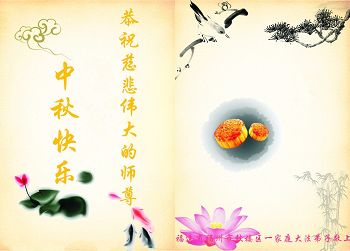 恭祝慈悲伟大的师尊
中秋快乐
福州市区一家庭大法弟子敬上